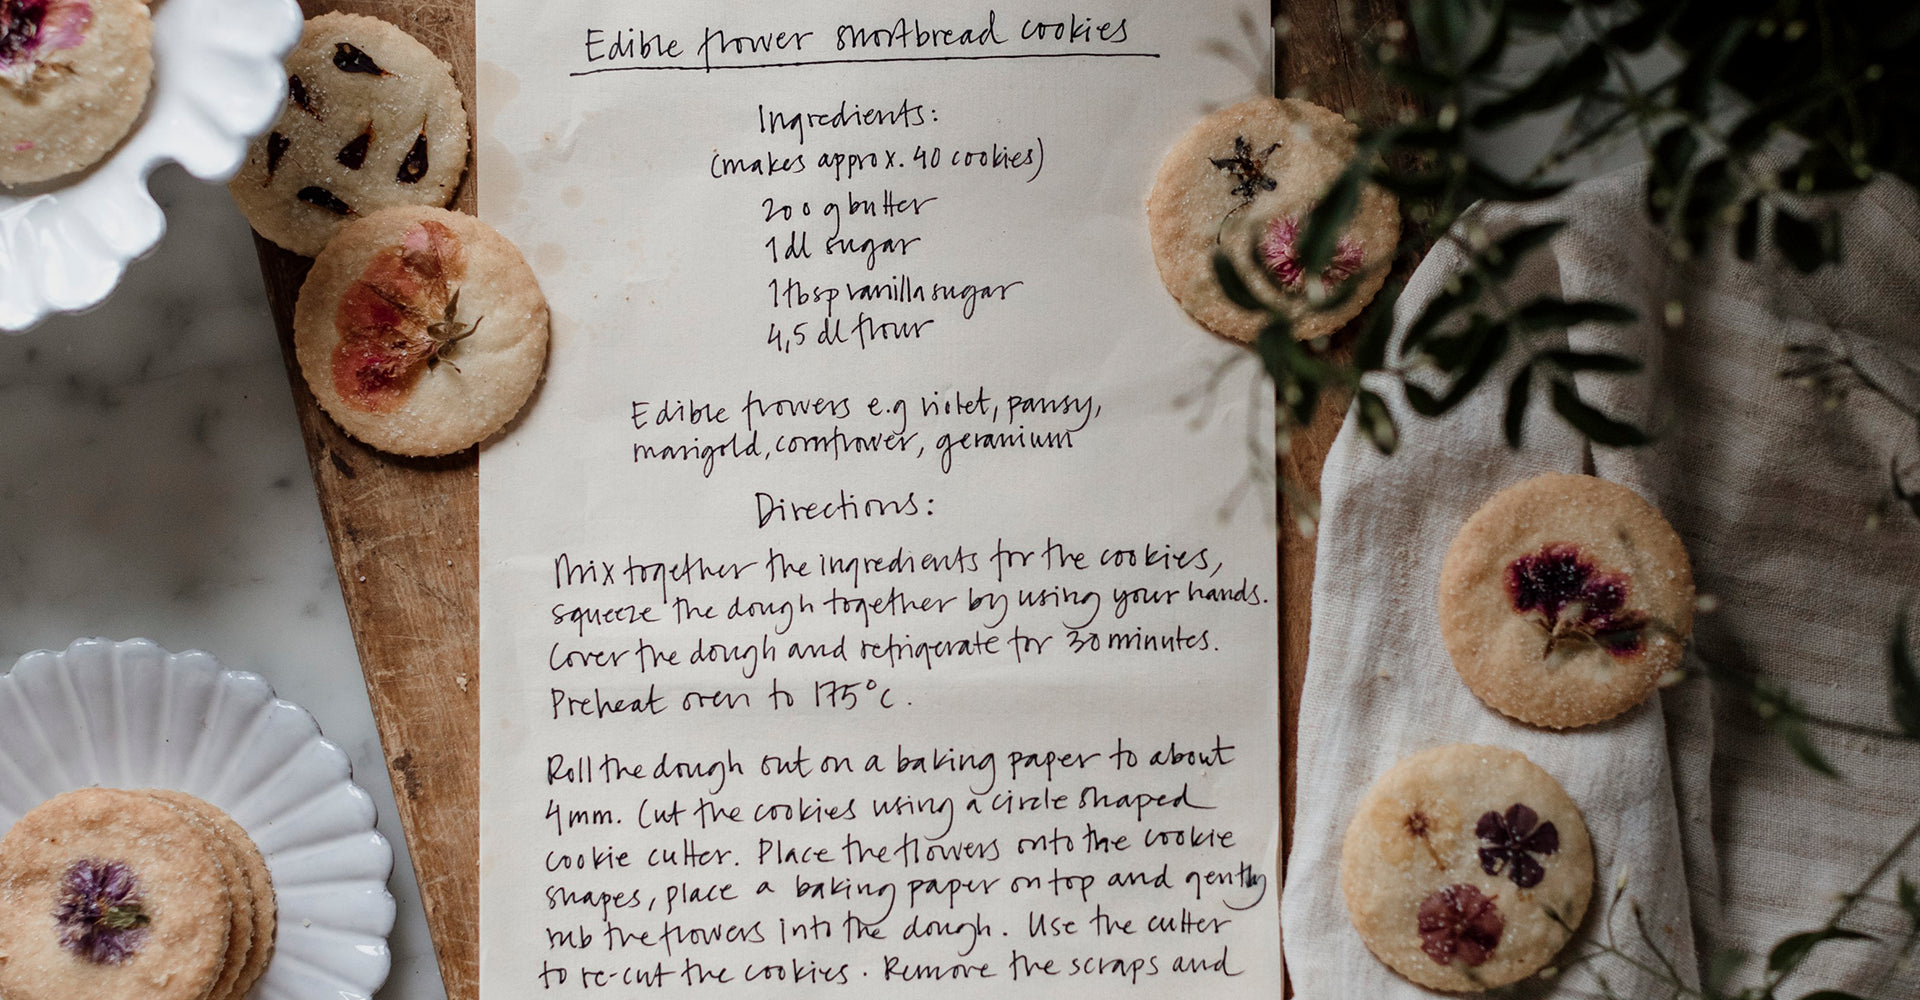 Edible flower shortbread cookies
Ingredients:
(makes approx. 40 cookies)
200 g butter
1 dl sugar
1 tbsp vanilla sugar
4,5 dl flour
Edible flowers e.g violet, pansy,
marigold, cornflower, geranium
Directions:
Mix together the ingredients for the cookies,
squeeze the dough together by using your hands.
Cover the dough and refrigerate for 30 minutes.
Preheat oven to 175°C.
Roll the dough out on a baking paper to about
4mm. Cut the cookies using a circle shaped
cookie cutter. Place the flowers onto the cookie
shapes, place a baking paper on top and gently
rub the flowers into the dough. Use the cutter
to re-cut the cookies. Remove the scraps and